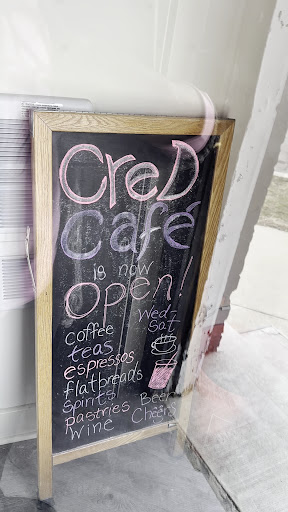 CreD
Café
is now
open!
Wed-
Sat
coffee
teas
espressos
flatbreads
spirits
pastries
wine
Beer
Cheers